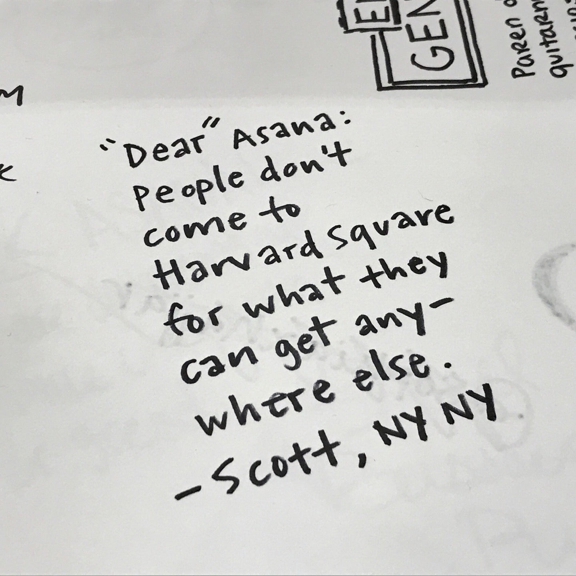 "Dear" Asana:
people don't
come to
Harvard Square
for what they
can get any-
where else.
- Scott, NY NY
GEN
Paren
guitarn